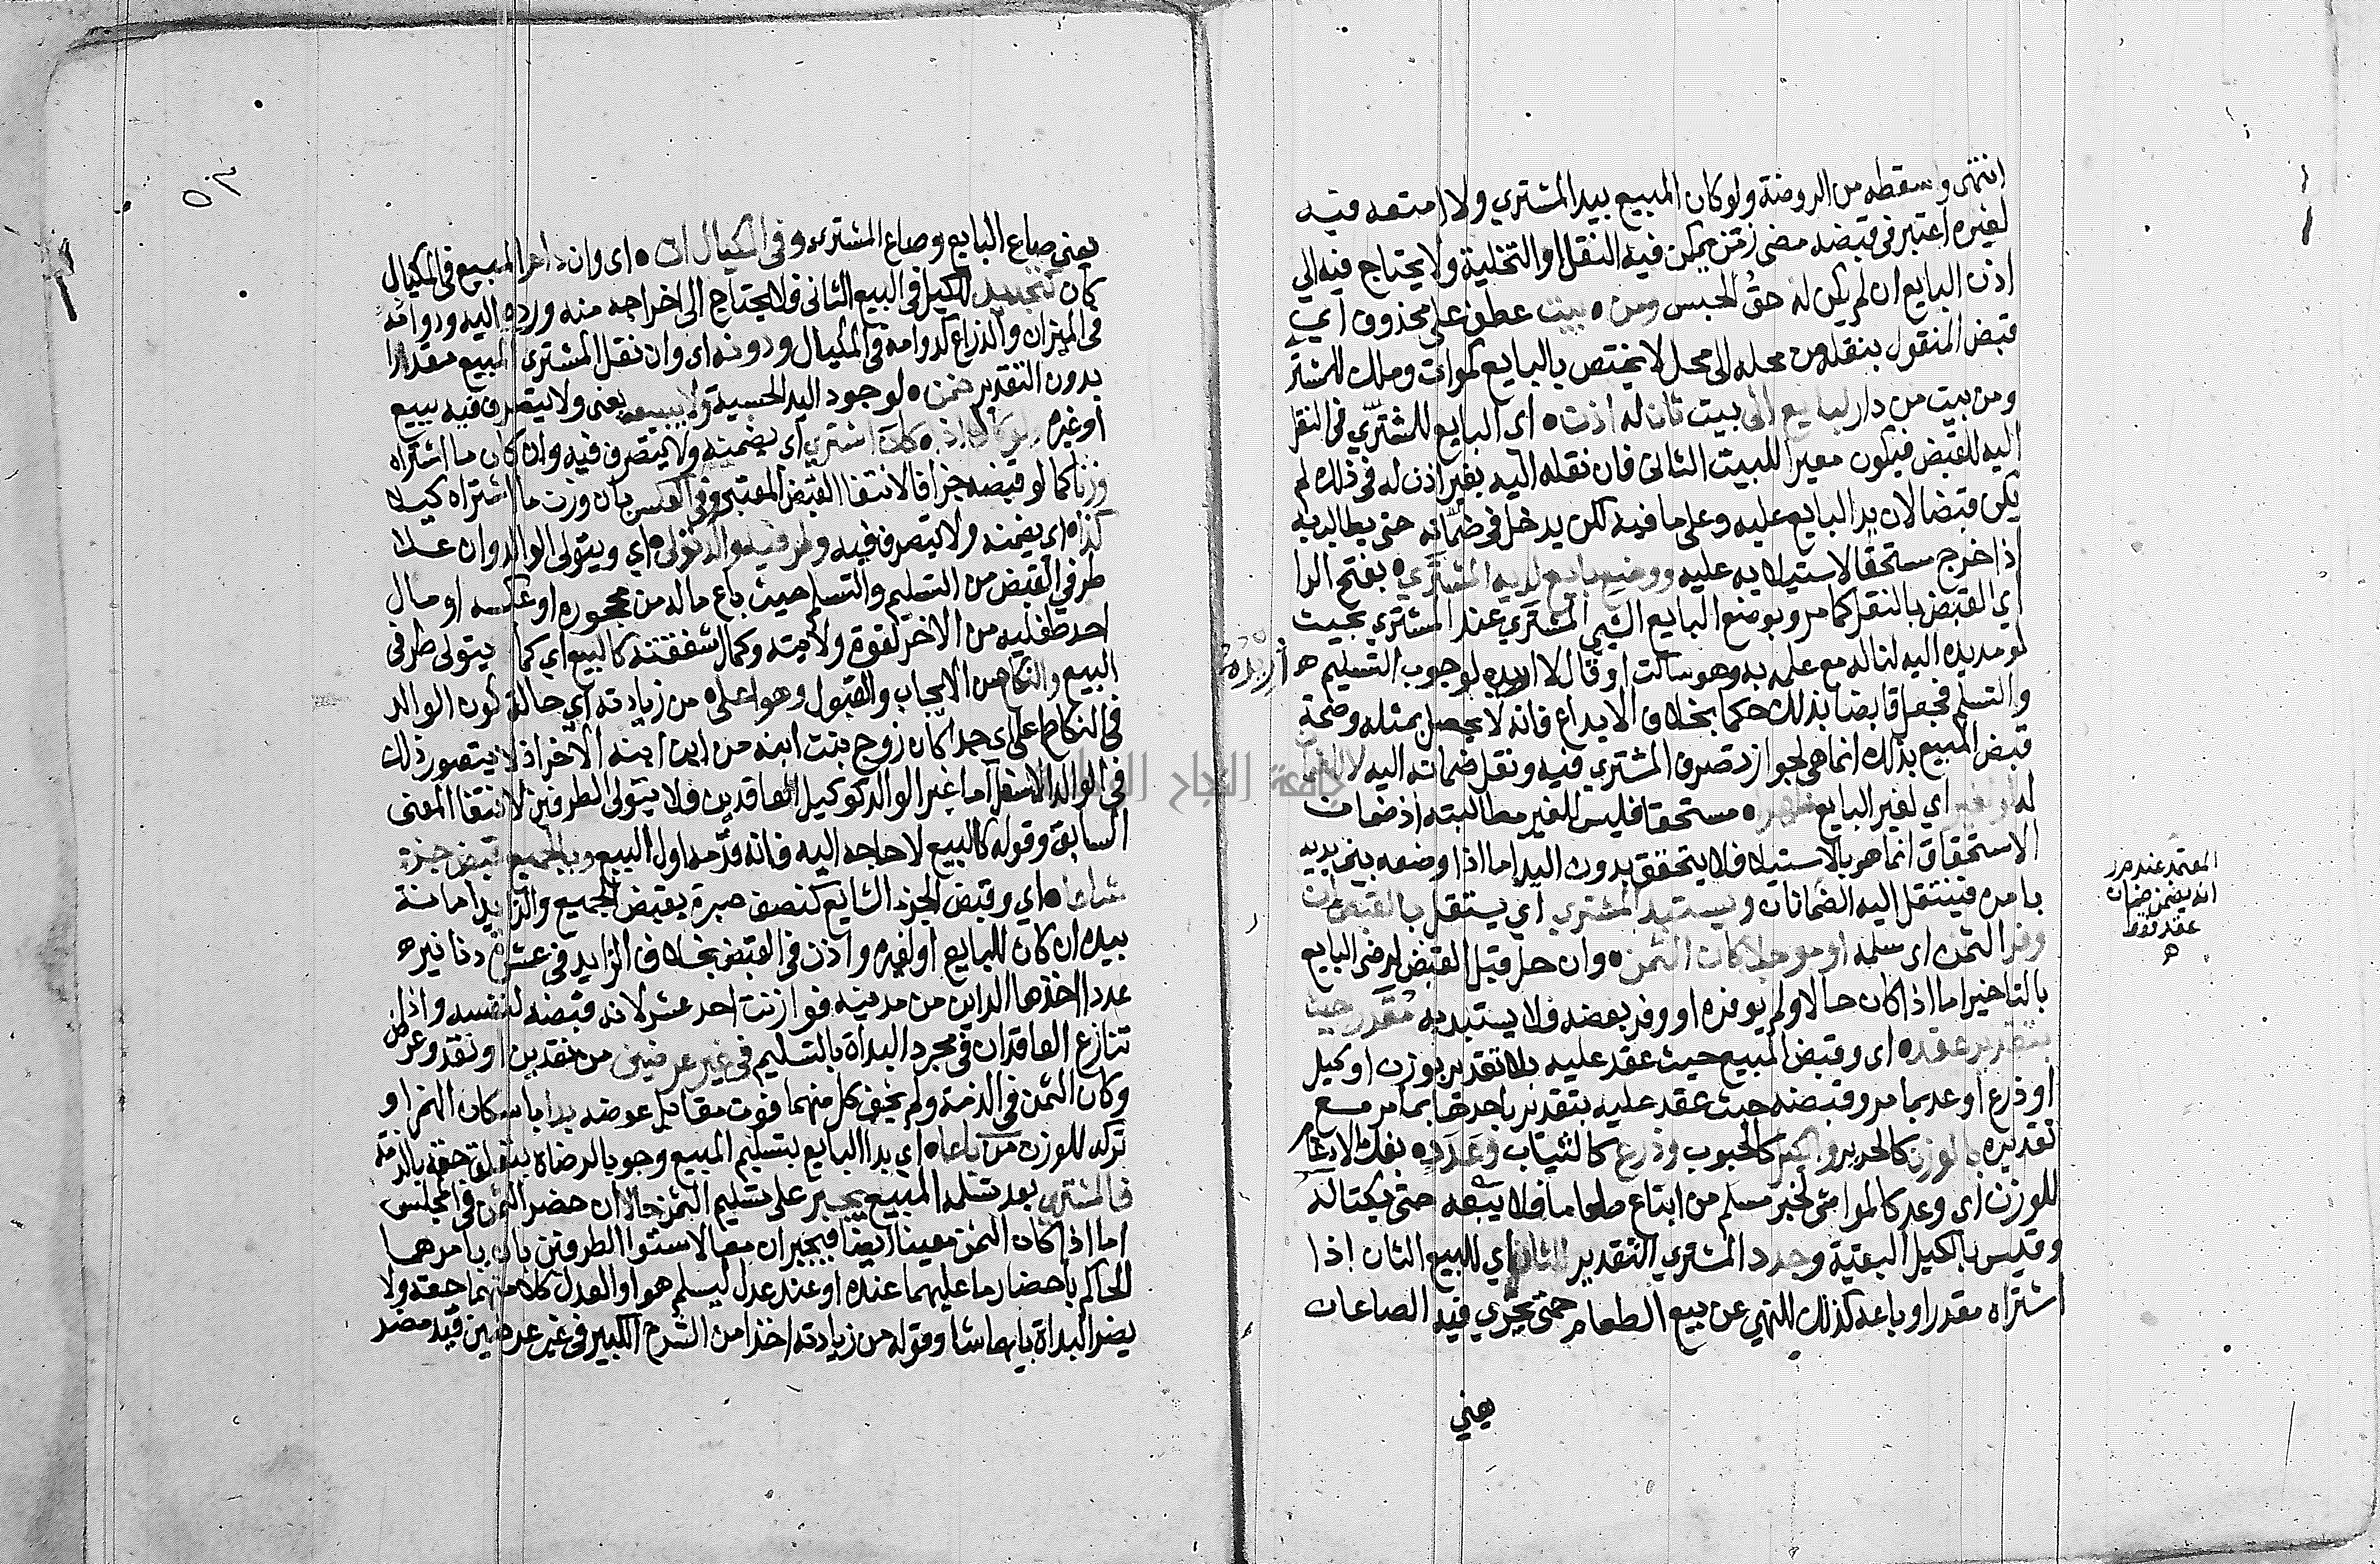 انتهى واسقطه من الروضة ولو كان المبيع بيد المشتري ولا امتعه فيه
لغيره اعتبر في قبضه مضى زمن يمكن فيه النقل او التخلية ولا يحتاج فيه الي
اذن البايع ان لم يكن له حق الحبس ومن بيت عطف على محذوف اي
قبض المنقول بنقله من محله الى محل لا يختص بالبايع كموات وملك للمشتر
ومن بيت من دار لبايع الى بيت ثان له اذن اى البايع للمشترّي في النقل
اليه للقبض فيكون معيرا للبيت الثانى فان نقله اليه بغير اذن له في ذلك لم
يكن قبضا لان يد البايع عليه وعلى ما فيه لكن يدخل في ضمانه حتى يطالب به
اذا خرج مستحقا لاستيلايه عليه ووضع بايع لديه المشترَي بفتح الرا
اي القبض بالنقل كما مر وبوضع البايع الشي المشترَي عند المشتري بحيث
لو مد يده اليه لناله مع علمه به وهو ساكت او قال لا اريده لوجوب التسليم
أريدُه
والتسلم فجعل قابضا بذلك حكما بخلاف الايداع فانه لا يحصل بمثله وصحة
قبض المبيع بذلك انما هي لجواز تصرف المشتري فيه ونقل ضمانه اليه لا
له او لغير اي لغير البايع ظهرا مستحقا فليس للغير مطالبته اذ ضمان
الاستحقاق انما هو بالاستيلا فلا يتحقق بدون اليد اما اذا وضعه بين يديه
بامره فينتقل اليه الضمانان ويستبد المشتري اي يستقل بالقبض ان
وفر الثمن اى سلمه او موجلا كان الثمن وان حل قبل القبض لرضى البايع
بالتاخير اما اذا كان حالا ولم يوفره او وفر بعضه فلا يستبد به مُقَدر حيث
بتقدير عقد اى وقبض المبيع حيث عقد عليه بلا تقدير بوزن او كيل
او ذرع او عد بما مر وقبضه حيث عقد عليه بتقدير باحدها بما مر مع
تقديره بالوزن كالحرير والكيل كالحبوب وذرع كالثياب وعَدَدِ بفك الادغام
للوزن اي وعد كالمواشى لخبر مسلم من ابتاع طعاما فلا يبعه حتى يكتاله
وقيس بالكيل البقية وجدد المشتري التقدير للثان اي للبيع الثان اذا
اشتراه مقدرا وباعه كذلك للنهي عن بيع الطعام حتى يجري فيه الصاعان
يعني
المعتمد عند مر
انه يضمن ضمان
عقد فقط
يعنى صاع البايع وصاع المشترى وفى المكيال ان اى وان دام المبيع في المكيال
كان كتجديد للكيل في البيع الثانى فلا يحتاج الى اخراجه منه ورده اليه ودوامه
في الميزان والذراع كدوامه في المكيال ودونه اى وان نقل المشترى المبيع مقدرا
بدون التقدير ضمن لوجود اليد الحسية ولا يبيعه يعنى ولا يتصرف فيه ببيع
اوغيره اشتري اى يضمنه ولا يتصرف فيه وان كان ما اشتراه
وزنا كما لو قبضه جزافا لانتفا القبض المعتبر وفي العكس بان وزن ما اشتراه كيلا
كذا اى يضمنه ولا يتصرف فيه وطرفيه والد تولى اي ويتولى الوالد وان علا
طرفي القبض من التسليم والتسلم حيث باع ماله من محجوره او عكسه او مال
احد طفليه من الاخر لقوة ولايته وكمال شفقته كالبيع اى كما يتولى طرفي
البيع والنكاح من الايجاب والقبول وهو اعلى من زيادته اي حالة كون الوالد
في النكاح اعلى اى جدا كان زوج بنت ابنه من ابن ابنه الاخر اذ لا يتصور ذلك
في الوالد الاسفل اما غير الوالد كوكيل العاقدين فلا يتولى الطرفين لانتفا المعنى
السابق وقوله كالبيع لا حاجه اليه فانه قدّمه اول البيع وبالجميع قبض جزء
شاعا اى وقبض الجزء الشايع كنصف صبرة بقبض الجميع والزايد امانة
بيده ان كان للبايع او لغيره واذن في القبض بخلاف الزايد في عشرة دنانير
عددا اخذها الداين من مدينه فوازنت احد عشر لانه قبضه لنفسه واذا
تنازع العاقدان في مجرد البداة بالتسليم في غير عرضين من نقدين او نقد وعرض
وكان الثمن في الذمة ولم يخف كل منهما فوت مقابل عوضه بدا باسكان الهمز او
تركه للوزن من باعا اي بدا البايع بتسليم المبيع وجوبا لرضاه بتعلق حقه بالذمة
فالمشترى بعد تسلمه المبيع يجبر على تسليم الثمن حالا ان حضر الثمن في المجلس
اما اذا كان الثمن معينا ايضا فيجبران معا لاستوا الطرفين بان يامرهما
الحاكم باحضار ما عليهما عنده او عند عدل ليسلم هو او العدل كلا منهما حقه ولا
يضر البداة بايهما شا وقوله من زيادته اخذا من الشرح الكبير في غير عرضين قيد مضر